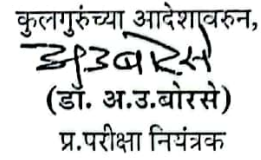 कुलगुरुंच्या आदेशावरुन,
अउबोरसे
(डॉ. अ.उ.बोरसे)
प्र.परीक्षा नियंत्रक